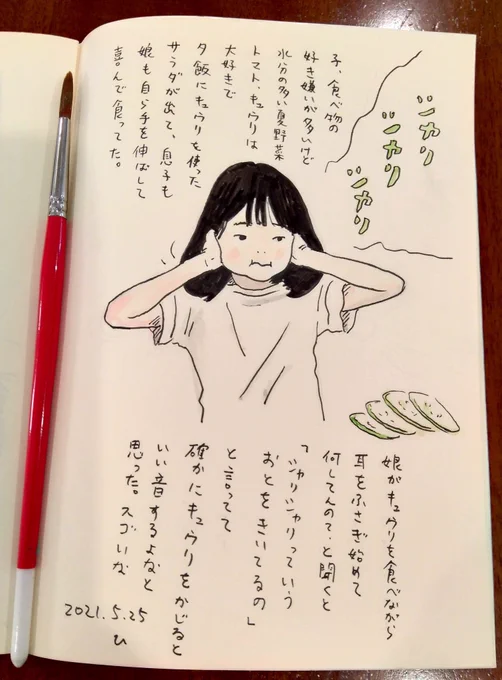 子、食べ物の
好き嫌いが多いけど
水分の多い夏野菜
トマト、キュウリは
大好きで
夕飯にキュウリを使った
サラダが出て、息子も
娘も自ら手を伸ばして
喜んで食ってた。
シャリ
シャリ
シャリ
娘がキュウリを食べながら
耳をふさぎ始めて
何してんの?と聞くと
「シャリシャリっていう
おとをきいてるの」
と言ってて
確かにキュウリをかじると
いい音するよなと
思った。スゴいな
2021.5.25
ひ